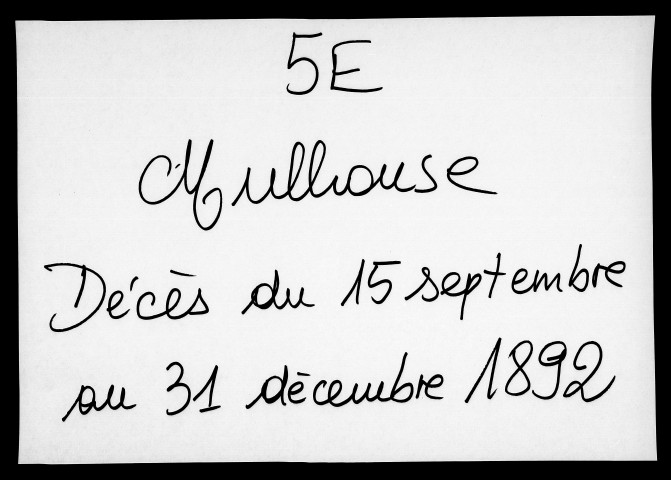 5E
Mulhouse
Décès du 15 septembre
au 31 décembre 1892